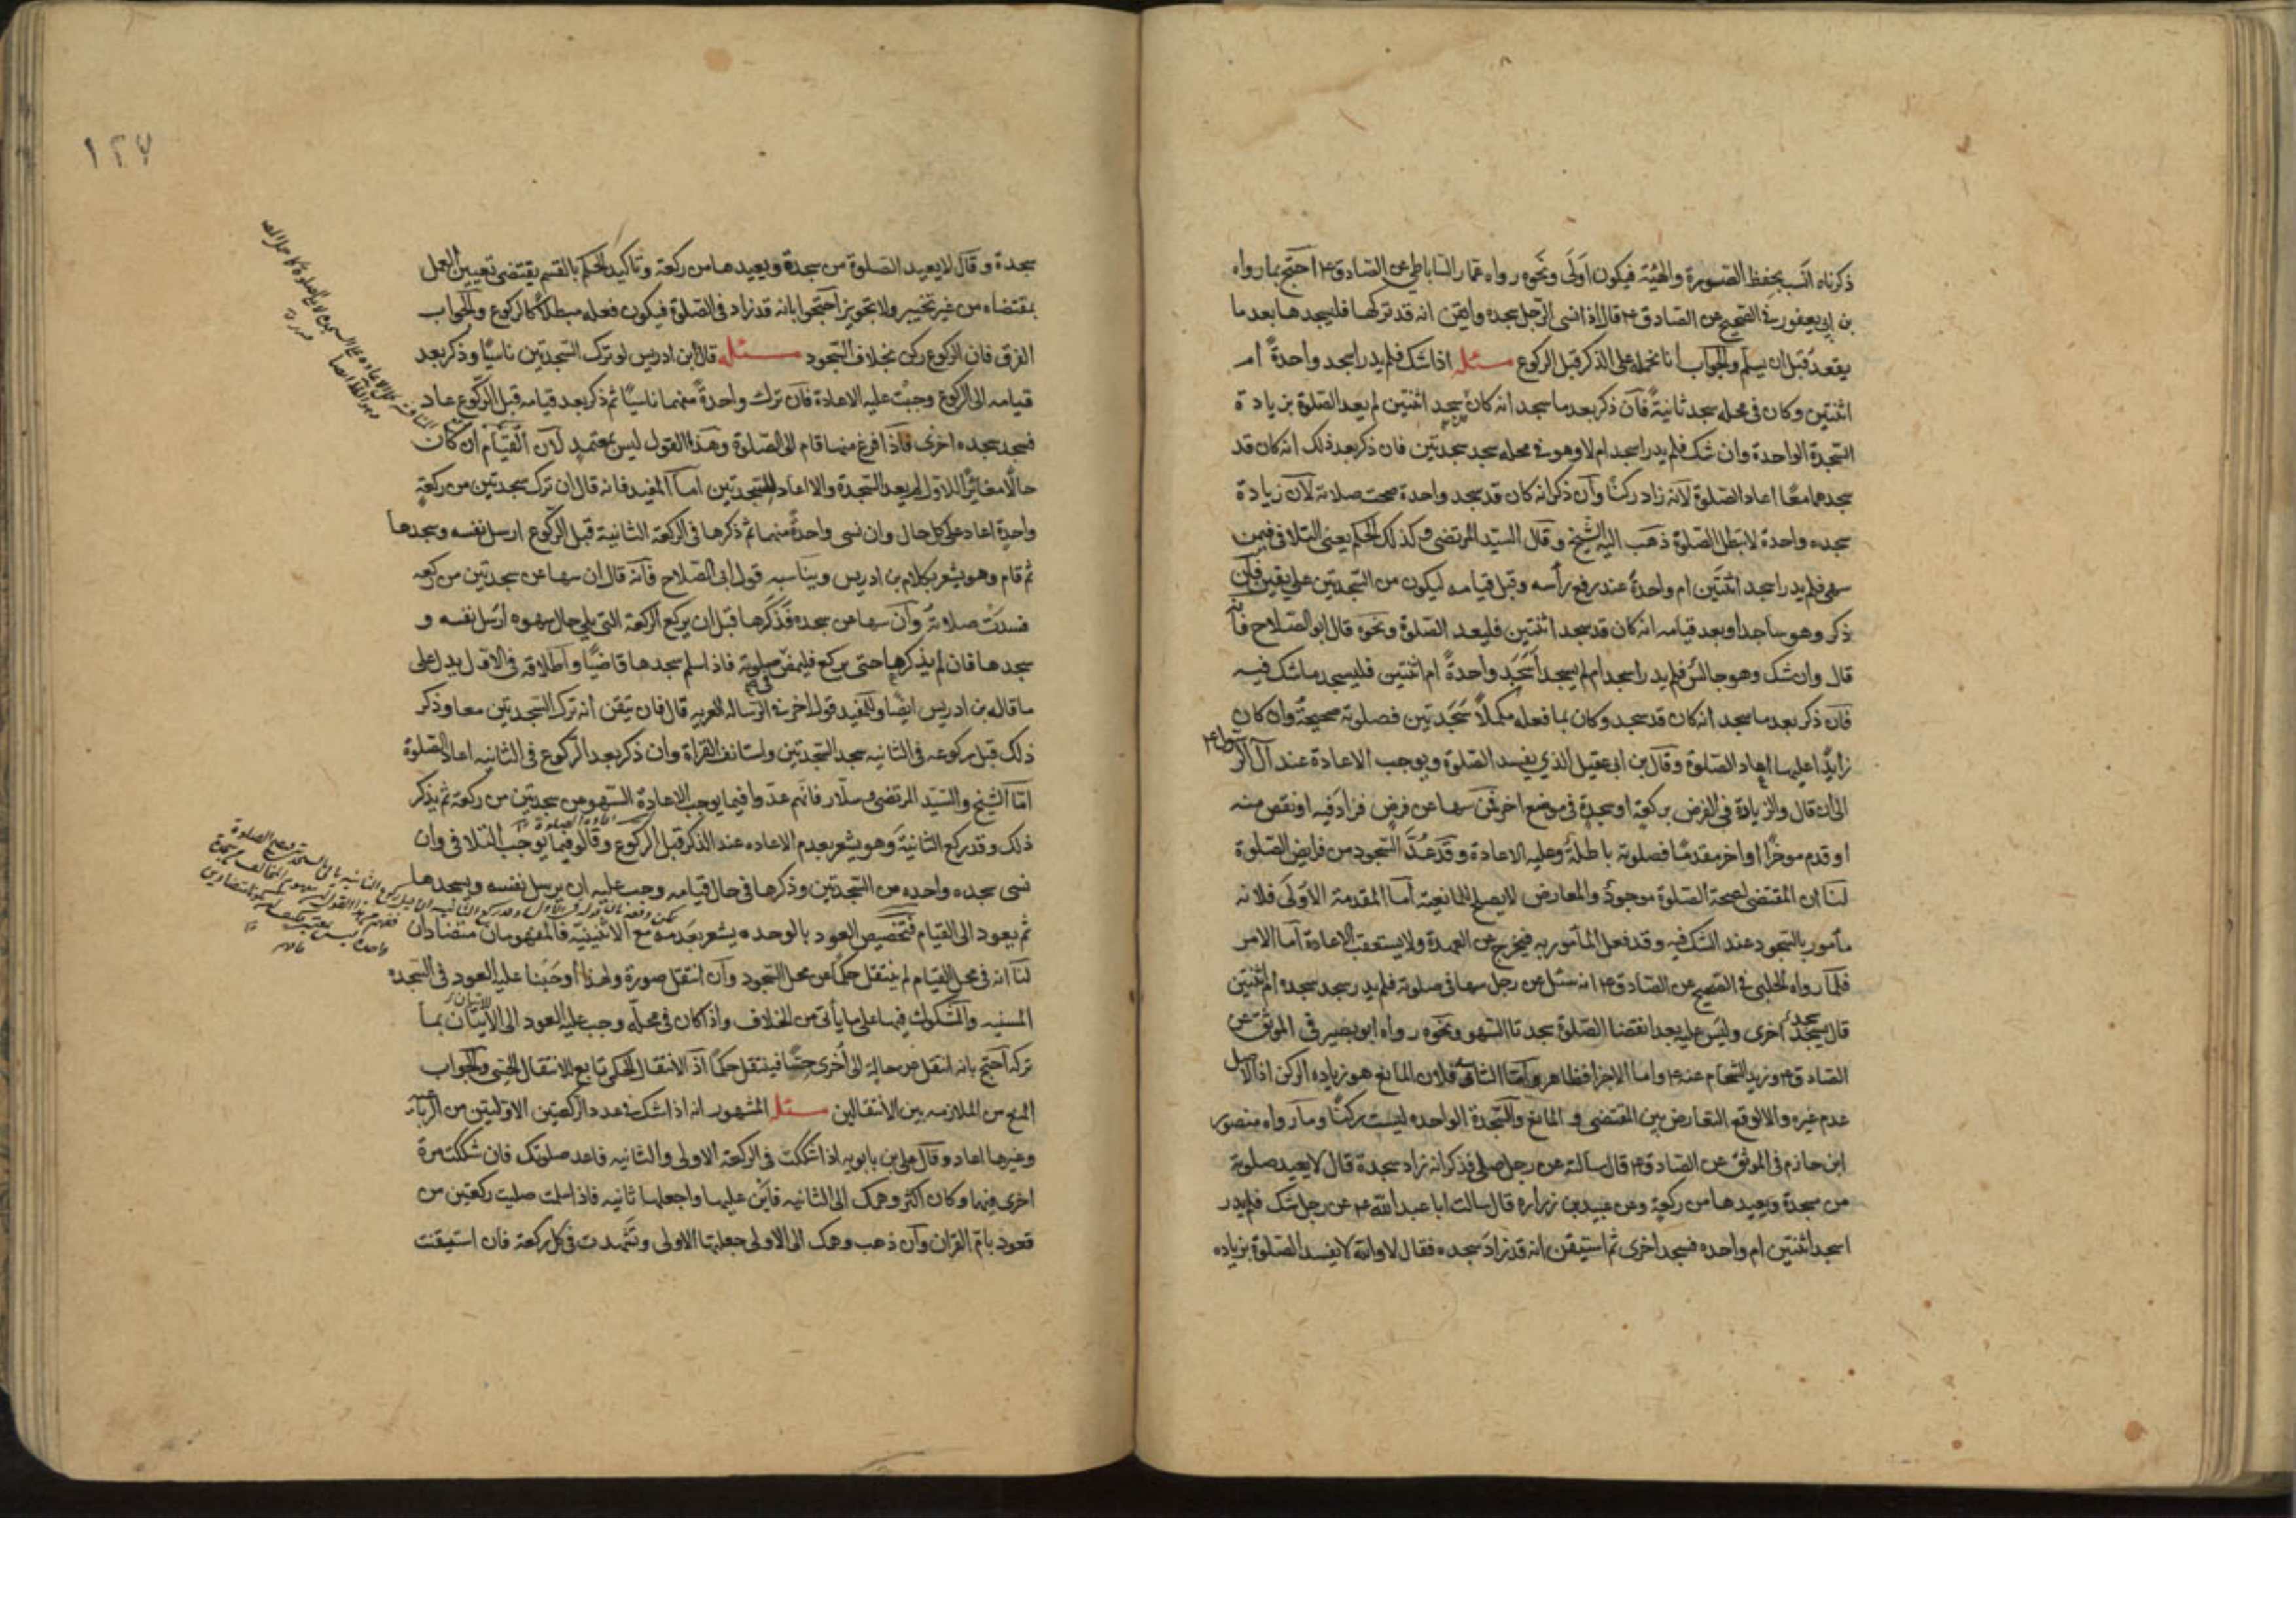 ذكرناه انسب بحفظ الصورة والهيئة فيكون اولى ونحوه رواه عمار الساباطي عن الصادق ع احتج بما رواه
بن ابي يعفور في الصحيح عن الصادق ع قال اذا نسى الرجل سجده وايقن انه قد تركها فليسجدها بعد ما
يقعد قبل ان يسلم والجواب انا نحمله على الذكر قبل الركوع مسئله اذا شك فلم يدر اسجد واحدة ام
اثنتين وكان في محله سجد ثانية فان ذكر بعد ما سجد انه كان سجد اثنتين لم يعد الصلوة بزيادة
السجدة الواحدة وان شك فلم يدر اسجد ام لا وهو في محله سجد سجدتين فان ذكر بعد ذلك انه كان قد
سجدهما معا اعاد الصلوة لانه زاد ركنا وان ذكر انه كان قد سجد واحدة صحت صلاته لان زيادة
سجده واحدة لا تبطل الصلوة ذهب اليه الشيخ وقال السيد المرتضى وكذلك الحكم يعنى التلافى فيمن
سهى فلم يدر اسجد اثنتين ام واحدة عند رفع رأسه وقبل قيامه ليكون من السجدتين على يقين فان
ذكر وهو ساجد او بعد قيامه انه كان قد سجد اثنتين فليعد الصلوة ونحوه قال ابو الصلاح فانه
قال وان شك وهو جالس فلم يدر اسجد ام لم يسجد اسجد واحدة ام اثنتين فليسجد ما شك فيه
فان ذكر بعد ما سجد انه كان قد سجد وكان بما فعله مكملا سجدتين فصلوته صحيحة وان كان
زايدا عليهما اعاد الصلوة وقال بن ابى عقيل الذي يفسد الصلوة ويوجب الاعادة عند آل الرسول ع
الى ان قال والزيادة في الفرض بركعة او سجدة في موضع اخر فمن سها عن فرض فزاد فيه او نقص منه
او قدم موخرا او اخر مقدما فصلوته باطلة وعليه الاعادة وقد عد السجود من فرايض الصلوة
لنا ان المقتضى لصحة الصلوة موجود والمعارض لا يصلح للمانعية اما المقدمة الاولى فلانه
مأمور بالسجود عند الشك فيه وقد فعل المأمور به فيخرج عن العهدة ولا يستعقب الاعادة اما الامر
فلما رواه الحلبى في الصحيح عن الصادق ع انه سئل عن رجل سها في صلوته فلم يدر سجد سجده ام اثنتين
قال يسجد اخرى وليس عليه بعد انقضا الصلوة سجدتا السهو ونحوه رواه ابو بصير في الموثق عن
الصادق ع وزيد الشحام عنه ع واما الاجزا فظاهر واما الثانيه فلان المانع هو زياده الركن اذ الاصل
عدم غيره والا لوقع التعارض بين المقتضى والمانع والسجدة الواحده ليست ركنا وما رواه منصور
ابن حازم في الموثق عن الصادق ع قال سالته عن رجل صلى فذكر انه زاد سجدة قال لا يعيد صلوته
من سجدة ويعيدها من ركعة وعن عبيد بن زراره قال سالت ابا عبد الله ع عن رجل شك فلم يدر
اسجد اثنتين ام واحده فسجد اخرى ثم استيقن انه قد زاد سجده فقال لا والله لا يفسد الصلوة بزياده
١٢٧
سجدة وقال لا يعيد الصلوة من سجدة ويعيدها من ركعة وتاكيد الحكم بالقسم يقتضى تعيين العمل
بمقتضاه من غير تخيير ولا تجويز احتجوا بانه قد زاد في الصلوة فيكون فعله مبطلا كالركوع والجواب
الفرق فان الركوع ركن بخلاف السجود مسئله قال ابن ادريس لو ترك السجدتين ناسيا وذكر بعد
قيامه الى الركوع وجبت عليه الاعادة فان ترك واحدة منهما ناسيا ثم ذكر بعد قيامه قبل الركوع عاد
فسجد سجده اخرى فاذا فرغ منها قام الى الصلوة وهذا القول ليس بمعتمد لان القيام ان كان
حالا مغايرا للاول لم يعد السجدة والا اعاد السجدتين اما المفيد فانه قال ان ترك سجدتين من ركعة
واحدة اعاد على كل حال وان نسى واحدة منهما ثم ذكرها في الركعة الثانية قبل الركوع ارسل نفسه وسجدها
ثم قام وهو يشعر بكلام بن ادريس ويناسبه قول ابى الصلاح فانه قال ان سها عن سجدتين من ركعة
فسدت صلاته وان سها عن سجده فذكرها قبل ان يركع الركعة التي يلي حال سهوه ارسل نفسه و
سجدها فان لم يذكرها حتى يركع فليمض في صلوته فاذا سلم سجدها قاضيا واطلاقه في الاول يدل على
ما قاله بن ادريس ايضا وللمفيد قول اخر في الرساله الغريه قال فان تيقن انه ترك السجدتين معا وذكر
ذلك قبل ركوعه في الثانيه سجد السجدتين واستانف القراة وان ذكر بعد الركوع في الثانيه اعاد الصلوة
اما الشيخ والسيد المرتضى وسلار فانهم عدوا فيما يوجب الاعادة السهو عن سجدتين من ركعة ثم يذكر
ذلك وقد ركع الثانية وهو يشعر بعدم الاعاده عند الذكر قبل الركوع وقالوا فيما يوجب التلافى وان
نسى سجده واحده من السجدتين وذكرها في حال قيامه وجب عليه ان يرسل نفسه ويسجدها
ثم يعود الى القيام فتخصيص العود بالوحده يشعر بعدمه مع الاثنينية فالمفهومان متضادان
لنا انه في محل القيام لم ينتقل حكما عن محل السجود وان انتقل صورة ولهذا اوجبنا عليه العود في السجده
المنسيه والشكوك فيها على ما يأتى من الخلاف واذا كان في محله وجب عليه العود الى الاتيان بما
تركه احتج بانه انتقل من حالة الى اخرى حسا فينتقل حكما اذ الانتقال الحكمى تابع للانتقال الحسى والجواب
المنع من الملازمه بين الانتقالين مسئله المشهور انه اذا شك في عدد الركعتين الاوليتين من الرباعيه
وغيرها اعاد وقال على بن بابويه اذا شككت في الركعة الاولى والثانيه فاعد صلوتك فان شككت مرة
اخرى فيهما وكان اكثر وهمك الى الثانيه فابن عليها واجعلها ثانيه فاذا سلمت صليت ركعتين من
قعود بام القران وان ذهب وهمك الى الاولى جعلتها الاولى وتشهدت في كل ركعة فان استيقنت